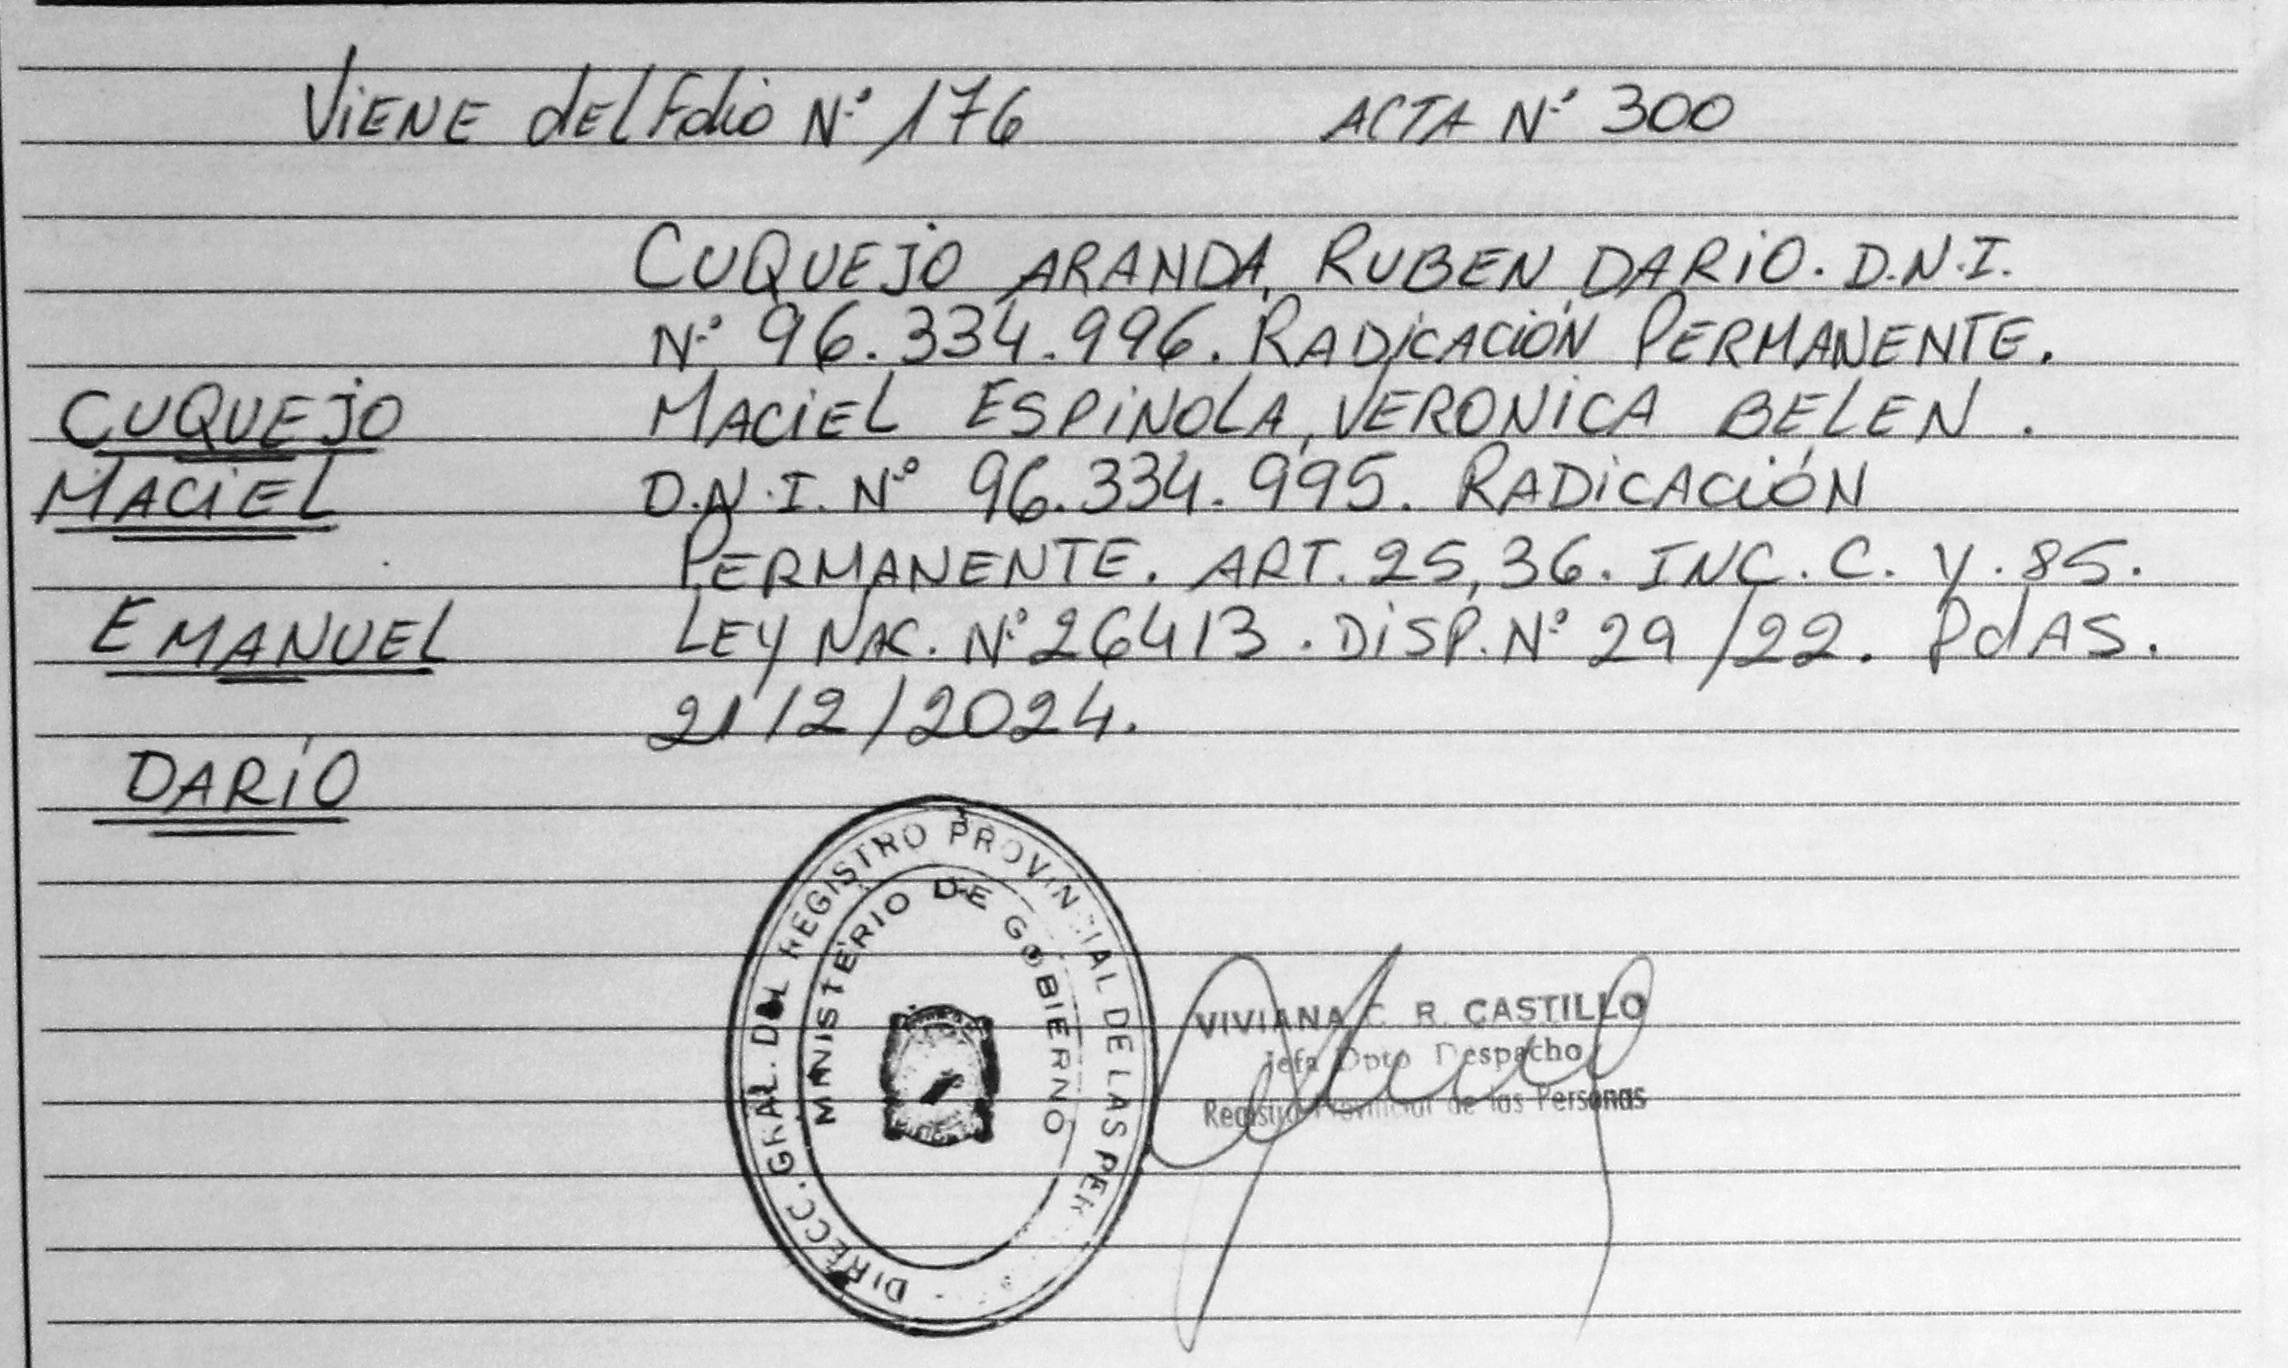 ViENE dEL Folio N.º 176 ACTA N.º 300
CUQUEJO ARANDA, RUBEN DARiO. D.N.I.
N.º 96.334.996. RADiCACiÓN PERMANENTE.
CUQUEJO MACiEL ESPiNOLA, VERONiCA BELEN.
MACiEL D.N.I. Nº 96.334.995. RADiCACiÓN
PERMANENTE. ART. 25, 36. INC. C. y. 85.
EMANUEL LEy NAC. N.º 26413. DiSP. Nº 29/22. PdAS.
21/2/2024.
DARÍO
DIRECC. GRAL. DEL REGISTRO PROVINCIAL DE LAS PER
MINISTERIO DE GOBIERNO
VIVIANA C. R. CASTILLO
Jefa Dpto Despacho
Registro Provincial de las Personas